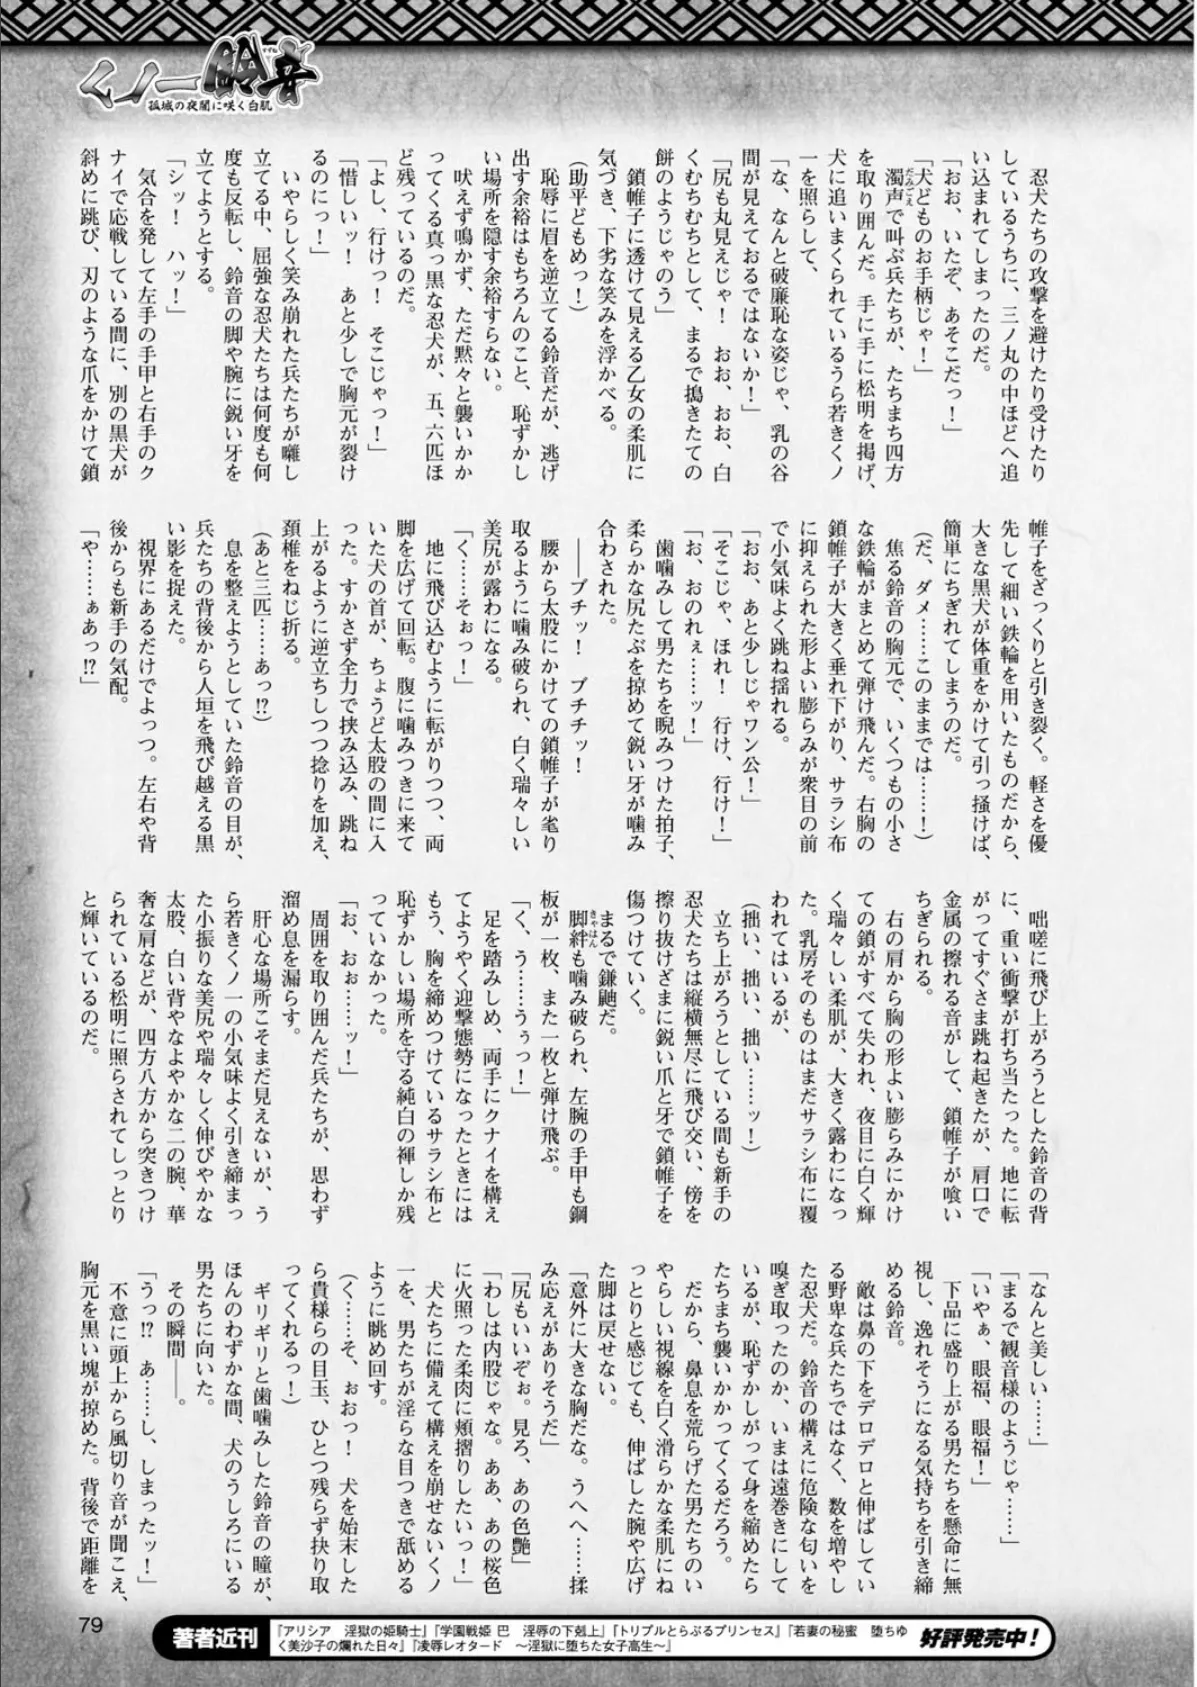 くノ一鈴音
すずね
孤城の夜闇に咲く白肌
忍犬たちの攻撃を避けたり受けたり
しているうちに、三ノ丸の中ほどへ追
い込まれてしまったのだ。
「おお、いたぞ、あそこだっ！」
「犬どものお手柄じゃ！」
濁声で叫ぶ兵たちが、たちまち四方
だみごえ
を取り囲んだ。手に手に松明を掲げ、
犬に追いまくられているうら若きくノ
一を照らして、
「な、なんと破廉恥な姿じゃ、乳の谷
間が見えておるではないか！」
「尻も丸見えじゃ！　おお、おお、白
くむちむちとして、まるで搗きたての
餅のようじゃのう」
鎖帷子に透けて見える乙女の柔肌に
気づき、下劣な笑みを浮かべる。
（助平どもめっ！）
恥辱に眉を逆立てる鈴音だが、逃げ
出す余裕はもちろんのこと、恥ずかし
い場所を隠す余裕すらない。
吠えず鳴かず、ただ黙々と襲いかか
ってくる真っ黒な忍犬が、五、六匹ほ
ど残っているのだ。
「よし、行けっ！　そこじゃっ！」
「惜しいッ！　あと少しで胸元が裂け
るのにっ！」
いやらしく笑み崩れた兵たちが囃し
立てる中、屈強な忍犬たちは何度も何
度も反転し、鈴音の脚や腕に鋭い牙を
立てようとする。
「シッ！　ハッ！」
気合を発して左手の手甲と右手のク
ナイで応戦している間に、別の黒犬が
斜めに跳び、刃のような爪をかけて鎖
帷子をざっくりと引き裂く。軽さを優
先して細い鉄輪を用いたものだから、
大きな黒犬が体重をかけて引っ掻けば、
簡単にちぎれてしまうのだ。
（だ、ダメ……このままでは……！）
焦る鈴音の胸元で、いくつもの小さ
な鉄輪がまとめて弾け飛んだ。右胸の
鎖帷子が大きく垂れ下がり、サラシ布
に抑えられた形よい膨らみが衆目の前
で小気味よく跳ね揺れる。
「おお、あと少しじゃワン公！」
「そこじゃ、ほれ！　行け、行け！」
「お、おのれぇ……ッ！」
歯噛みして男たちを睨みつけた拍子、
柔らかな尻たぶを掠めて鋭い牙が噛み
合わされた。
――ブチッ！　ブチチッ！
腰から太股にかけての鎖帷子が毟り
取るように噛み破られ、白く瑞々しい
美尻が露わになる。
「く……そぉっ！」
地に飛び込むように転がりつつ、両
脚を広げて回転。腹に噛みつきに来て
いた犬の首が、ちょうど太股の間に入
った。すかさず全力で挟み込み、跳ね
上がるように逆立ちしつつ捻りを加え、
頚椎をねじ折る。
（あと三匹……あっ!?）
息を整えようとしていた鈴音の目が、
兵たちの背後から人垣を飛び越える黒
い影を捉えた。
視界にあるだけでよっつ。左右や背
後からも新手の気配。
「や……ぁあっ!?」
咄嗟に飛び上がろうとした鈴音の背
に、重い衝撃が打ち当たった。地に転
がってすぐさま跳ね起きたが、肩口で
金属の擦れる音がして、鎖帷子が喰い
ちぎられる。
右の肩から胸の形よい膨らみにかけ
ての鎖がすべて失われ、夜目に白く輝
く瑞々しい柔肌が、大きく露わになっ
た。乳房そのものはまだサラシ布に覆
われてはいるが、
（拙い、拙い、拙い……ッ！）
立ち上がろうとしている間も新手の
忍犬たちは縦横無尽に飛び交い、傍を
擦り抜けざまに鋭い爪と牙で鎖帷子を
傷つけていく。
まるで鎌鼬だ。
脚絆も噛み破られ、左腕の手甲も鋼
きゃはん
板が一枚、また一枚と弾け飛ぶ。
「く、う……うぅっ！」
足を踏みしめ、両手にクナイを構え
てようやく迎撃態勢になったときには
もう、胸を締めつけているサラシ布と
恥ずかしい場所を守る純白の褌しか残
っていなかった。
「お、おぉ……ッ！」
周囲を取り囲んだ兵たちが、思わず
溜め息を漏らす。
肝心な場所こそまだ見えないが、う
ら若きくノ一の小気味よく引き締まっ
た小振りな美尻や瑞々しく伸びやかな
太股、白い背やなよやかな二の腕、華
奢な肩などが、四方八方から突きつけ
られている松明に照らされてしっとり
と輝いているのだ。
「なんと美しい……」
「まるで観音様のようじゃ……」
「いやぁ、眼福、眼福！」
下品に盛り上がる男たちを懸命に無
視し、逸れそうになる気持ちを引き締
める鈴音。
敵は鼻の下をデロデロと伸ばしてい
る野卑な兵たちではなく、数を増やし
た忍犬だ。鈴音の構えに危険な匂いを
嗅ぎ取ったのか、いまは遠巻きにして
いるが、恥ずかしがって身を縮めたら
たちまち襲いかかってくるだろう。
だから、鼻息を荒らげた男たちのい
やらしい視線を白く滑らかな柔肌にね
っとりと感じても、伸ばした腕や広げ
た脚は戻せない。
「意外に大きな胸だな。うへへ……揉
み応えがありそうだ」
「尻もいいぞぉ。見ろ、あの色艶」
「わしは内股じゃな。ああ、あの桜色
に火照った柔肉に頬摺りしたいっ！」
犬たちに備えて構えを崩せないくノ
一を、男たちが淫らな目つきで舐める
ように眺め回す。
（く……そ、ぉおっ！　犬を始末した
ら貴様らの目玉、ひとつ残らず抉り取
ってくれるっ！）
ギリギリと歯噛みした鈴音の瞳が、
ほんのわずかな間、犬のうしろにいる
男たちに向いた。
その瞬間――。
「うっ!?　あ……し、しまったッ！」
不意に頭上から風切り音が聞こえ、
胸元を黒い塊が掠めた。背後で距離を
79
著者近刊
『アリシア　淫獄の姫騎士』『学園戦姫 巴　淫辱の下剋上』『トリプルとらぶるプリンセス』『若妻の秘蜜　堕ちゆ
く美沙子の爛れた日々』『凌辱レオタード　～淫獄に堕ちた女子高生～』
好評発売中！